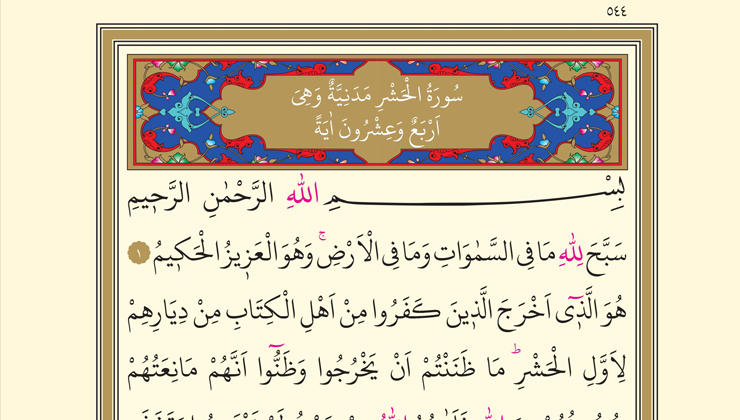 ٥٤٤
سُورَةُ الْحَشْرِ مَدَنِيَّةٌ وَهِىَ
اَرْبَعٌ وَعِشْرُونَ اٰيَةً
بِسْمِ اللّٰهِ الرَّحْمٰنِ الرَّح۪يمِ
سَبَّحَ لِلّٰهِ مَا فِى السَّمٰوَاتِ وَمَا فِى الْاَرْضِۚ وَهُوَ الْعَز۪يزُ الْحَك۪يمُ ١
هُوَ الَّذ۪ٓى اَخْرَجَ الَّذ۪ينَ كَفَرُوا مِنْ اَهْلِ الْكِتَابِ مِنْ دِيَارِهِمْ
لِاَوَّلِ الْحَشْرِۜ مَا ظَنَنْتُمْ اَنْ يَخْرُجُوا وَظَنُّٓوا اَنَّهُمْ مَانِعَتُهُمْ